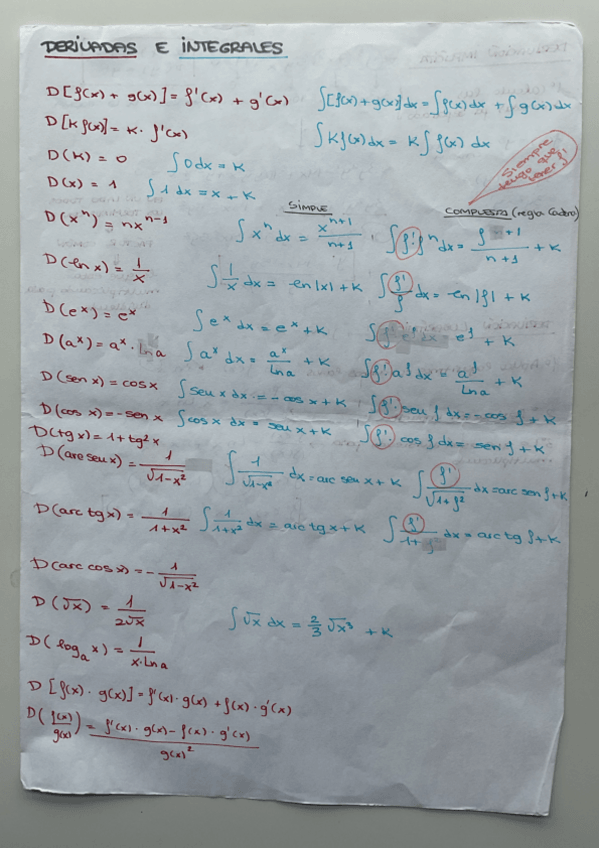 DERIVADAS E INTEGRALES
D[f(x) + g(x)] = f'(x) + g'(x) ∫[f(x)+g(x)]dx = ∫f(x)dx + ∫g(x)dx
D[K f(x)] = K · f'(x) ∫Kf(x)dx = K∫f(x) dx
Siempre tengo que tener f'
D(K) = 0 ∫0dx = K
D(x) = 1 ∫1 dx = x + K
SIMPLE COMPUESTA (regla Cadena)
D(xⁿ) = nxⁿ⁻¹ ∫xⁿdx = xⁿ⁺¹/n+1 ∫f'·fⁿdx = fⁿ⁺¹/n+1 + K
D(ln x) = 1/x ∫1/x dx = ln|x| + K ∫f'/f dx = ln|f| + K
D(eˣ) = eˣ ∫eˣ dx = eˣ + K ∫f' eᶠ dx = eᶠ + K
D(aˣ) = aˣ · ln a ∫aˣ dx = aˣ/Ln a + K ∫f'·aᶠ dx = aᶠ/Ln a + K
D(sen x) = cos x ∫sen x dx = -cos x + K ∫f'·sen f dx = -cos f + K
D(cos x) = -sen x ∫cos x dx = sen x + K ∫f'· cos f dx = sen f + K
D(tg x) = 1 + tg²x
D(arc sen x) = 1/√1-x² ∫1/√1-x² dx = arc sen x + K ∫f'/√1+f² dx = arc sen f + K
D(arc tg x) = 1/1+x² ∫1/1+x² dx = arc tg x + K ∫f'/1+f² dx = arc tg f + K
D(arc cos x) = - 1/√1-x²
D(√x) = 1/2√x ∫√x dx = 2/3 √x³ + K
D(logₐ x) = 1/x·Ln a
D[f(x) · g(x)] = f'(x) · g(x) + f(x) · g'(x)
D(f(x)/g(x)) = f'(x) · g(x) - f(x) · g'(x)/g(x)²